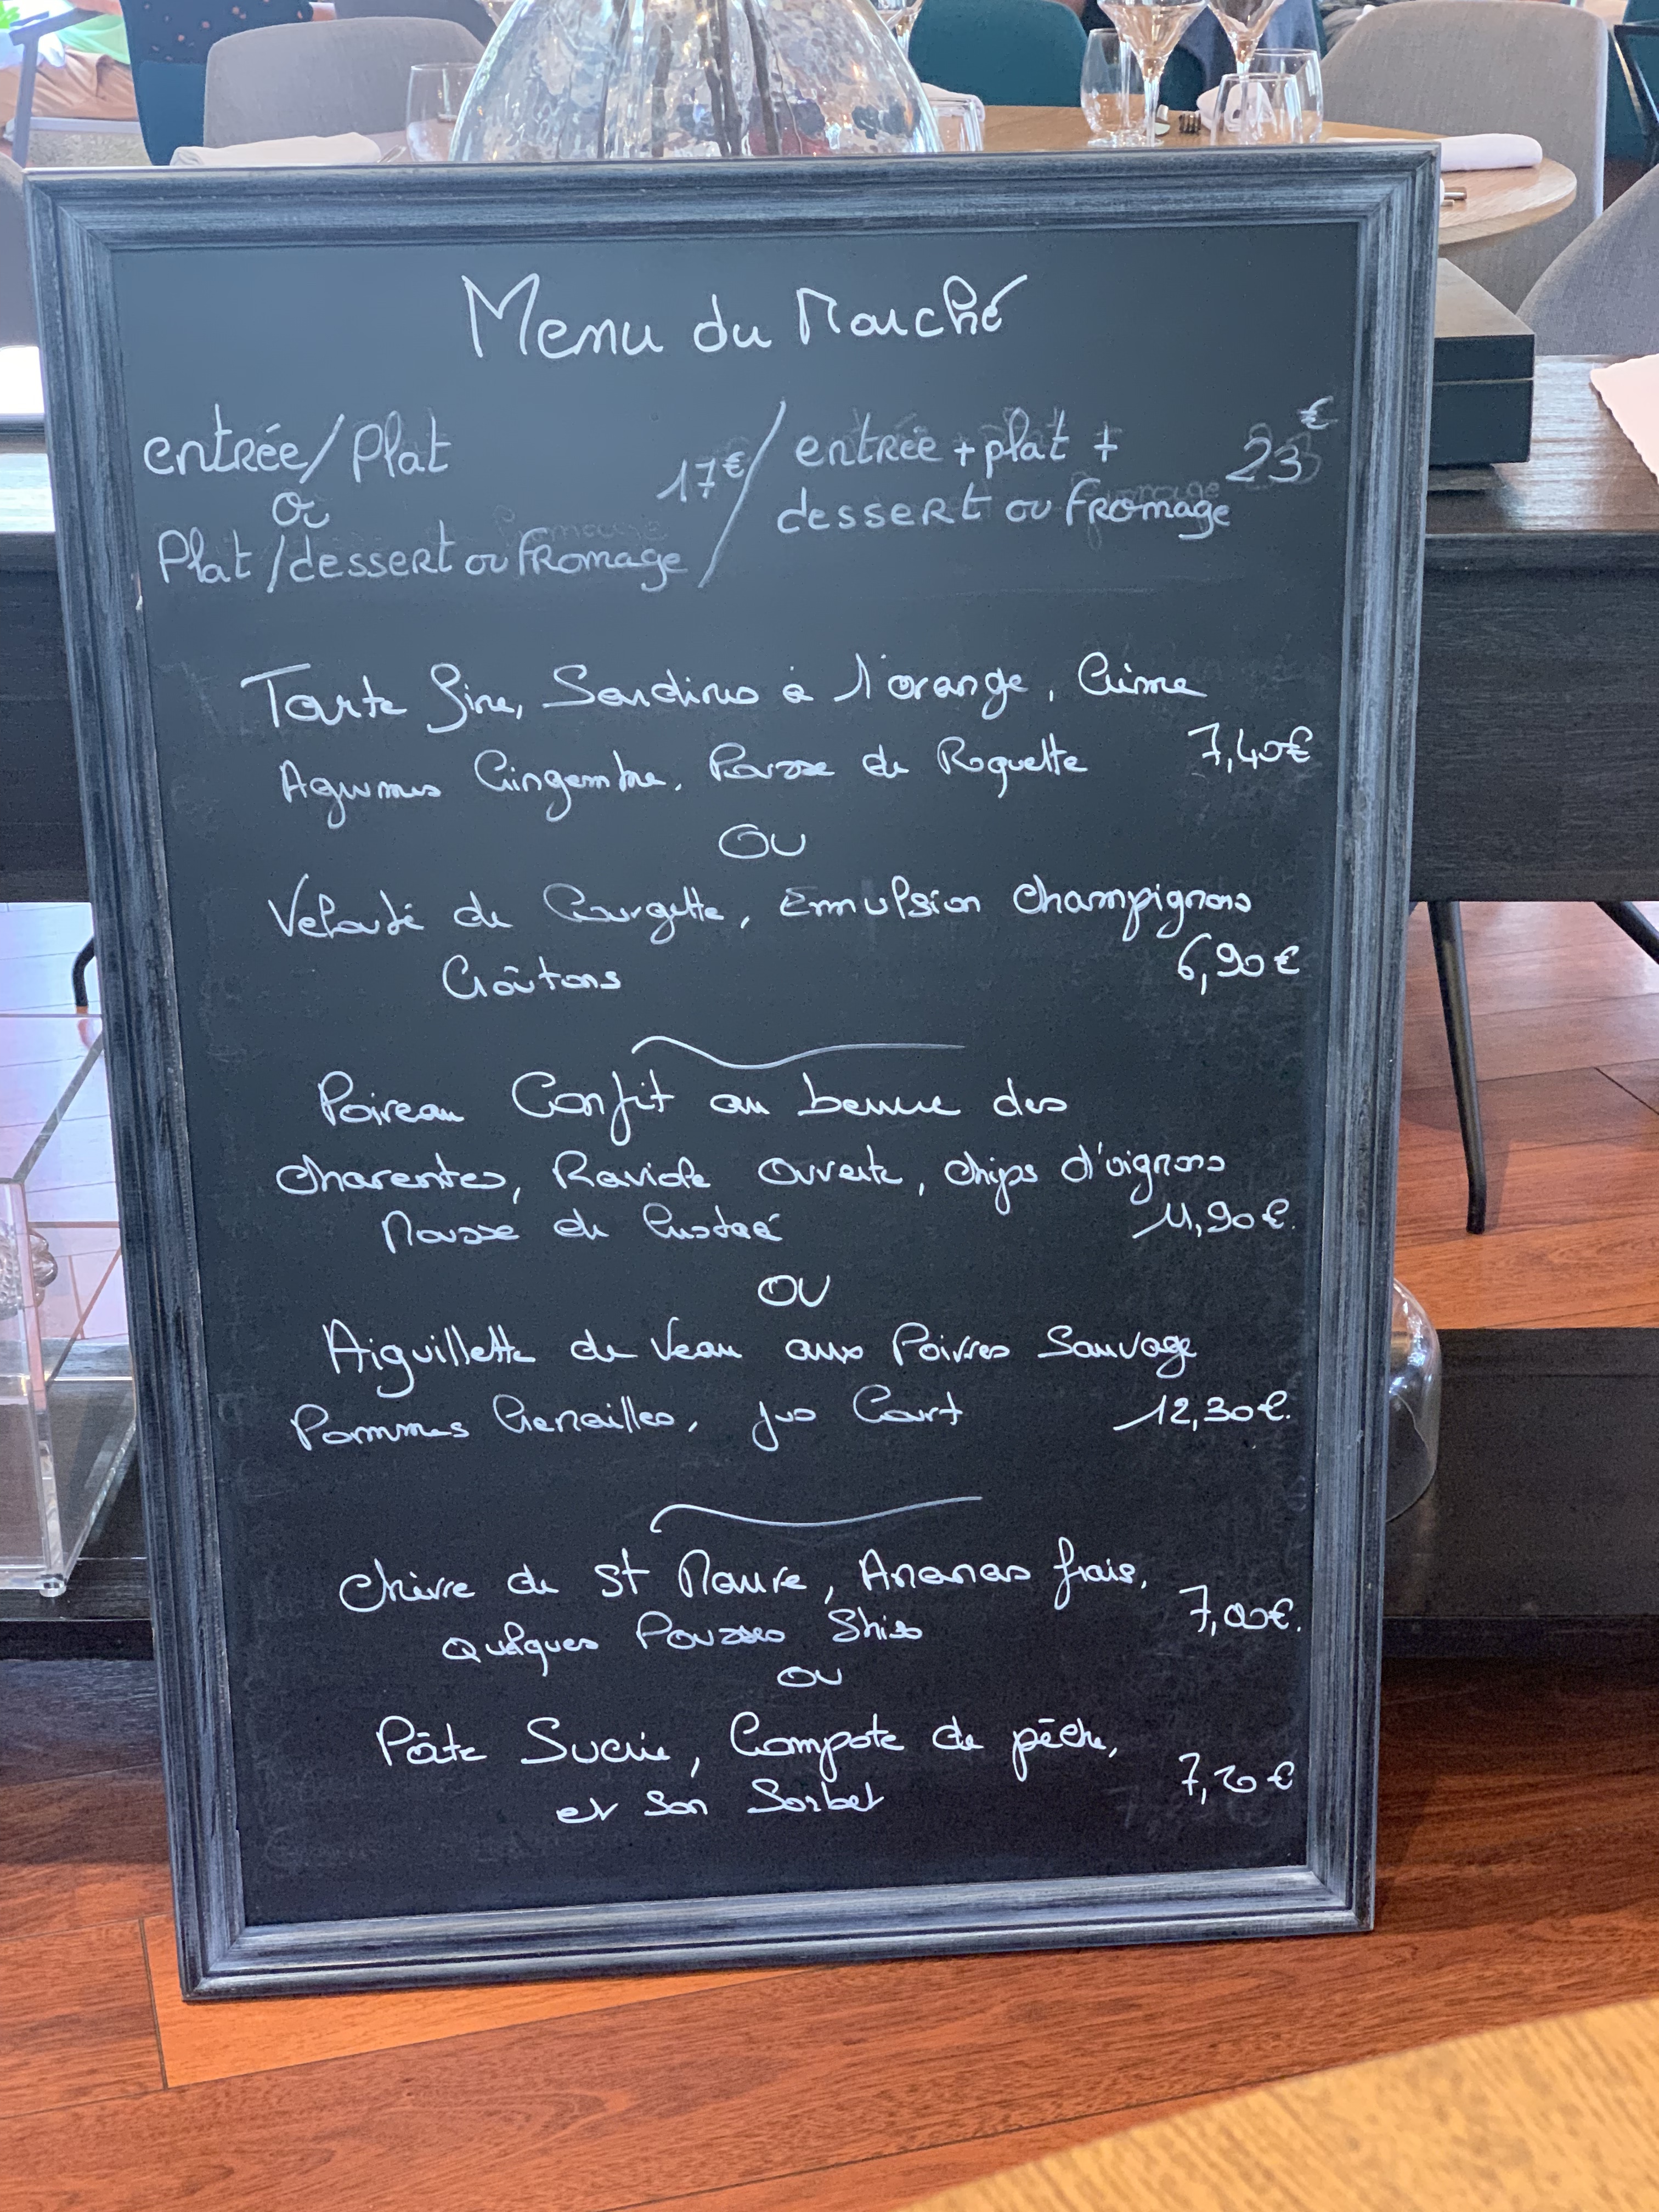 Menu du Marché
entrée/Plat
ou
Plat/dessert ou fromage
17€
entrée + plat +
dessert ou fromage
23€
Tarte fine, Sardines à l'orange, Crème
Agrumes Gingembre, Pousse de Roquette 7,40€
OU
Velouté de Courgette, Emulsion Champignons
Croûtons 6,90€
Poireau Confit au beurre des
Charentes, Raviole Ouverte, chips d'oignons
Mousse de Crustacé 11,90€.
OU
Aiguillette de Veau aux Poivres Sauvage
Pommes Grenailles, jus Court 12,30€.
Chèvre de St Maure, Ananas frais,
Quelques Pousses Shiso 7,00€.
OU
Pâte Sucrée, Compote de pêche,
et son Sorbet 7,20€